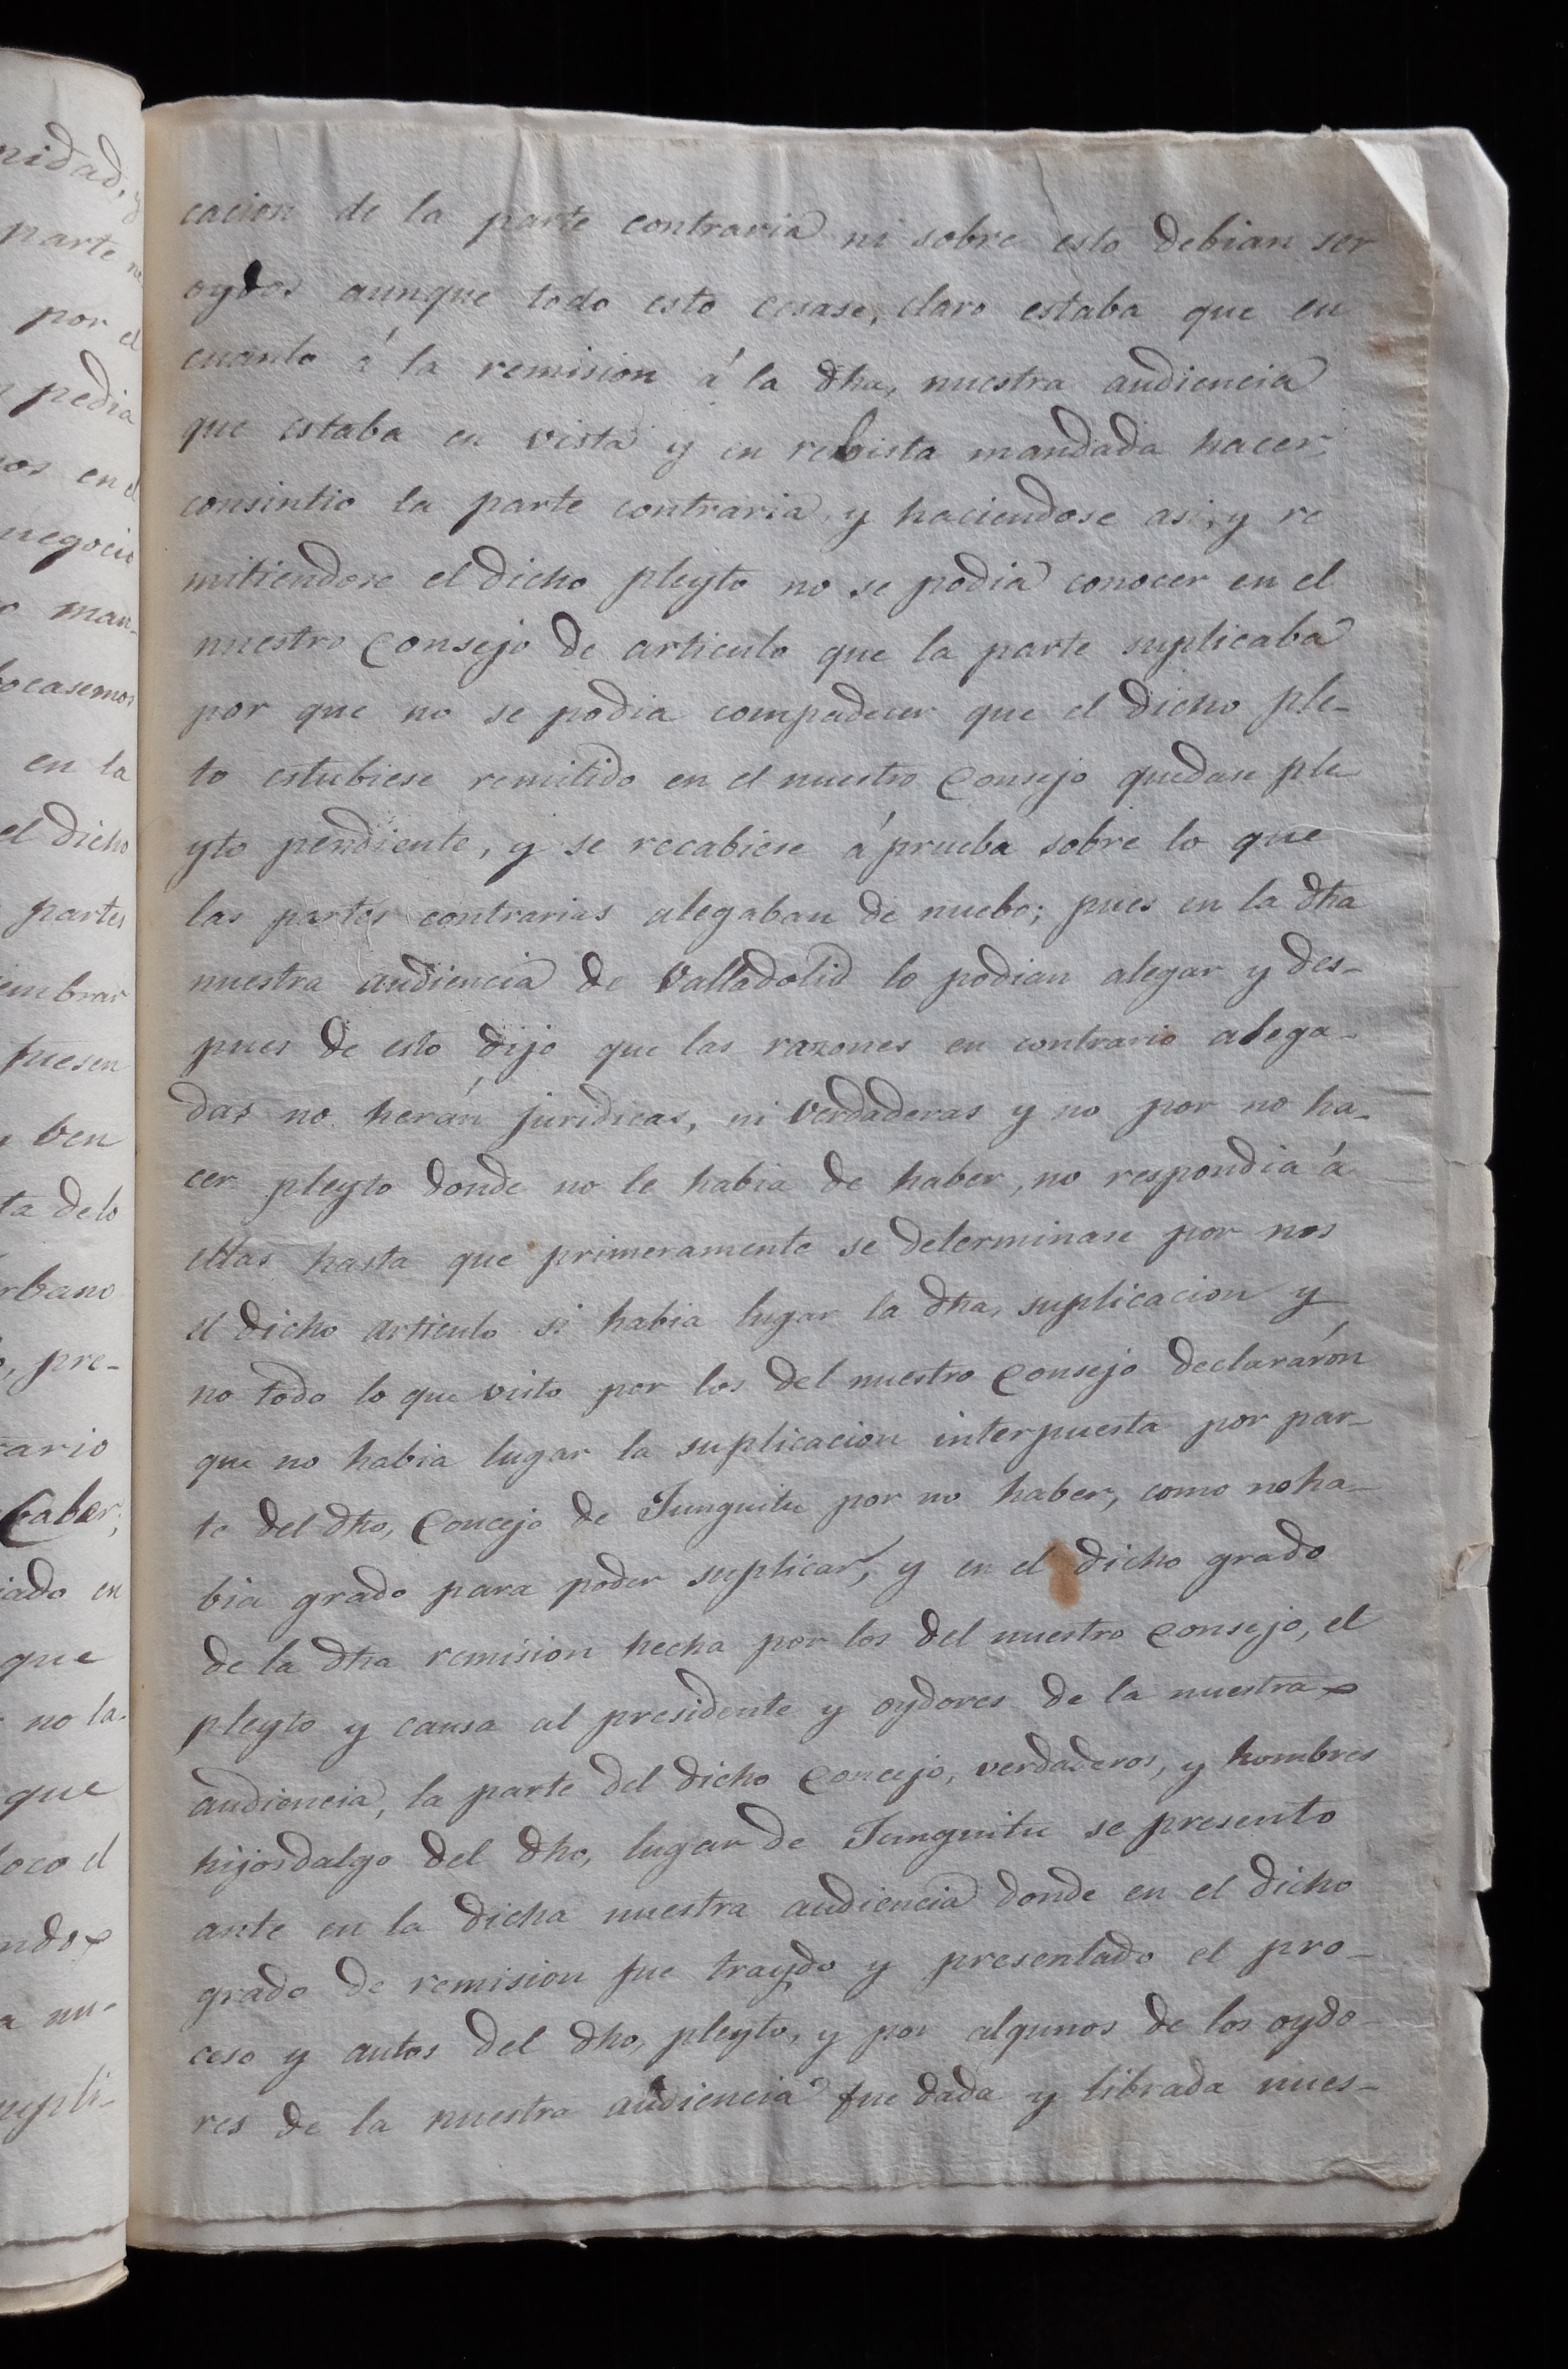 cacion de la parte contraria ni sobre esto debian ser
oydos aunque todo esto cesase, claro estaba que en
cuanto á la remision á la dha, nuestra audiencia
que estaba en vista y en rebista mandada hacer,
consintio la parte contraria, y haciendose asi, y re
mitiendose el dicho pleyto no se podia conocer en el
nuestro Consejo de articulo que la parte suplicaba
por que no se podia compadecer que el dicho ple-
to estubiese remitido en el nuestro Consejo quedase ple
yto pendiente, y se recabiese á prueba sobre lo que
las partes contrarias alegaban de nuebo; pues en la dha
nuestra audiencia de Valladolid lo podian alegar y des-
pues de esto dijo que las razones en contrario alega-
das no herán juridicas, ni verdaderas y no por no ha-
cer pleyto donde no le habia de haber, no respondia á
ellas hasta que primeramente se determinase por nos
el dicho articulo si habia lugar la dha, suplicacion y
no todo lo que visto por los del nuestro Consejo declararón
que no habia lugar la suplicacion interpuesta por par-
te del dho, Concejo de Junguitu por no haber, como no ha-
bia grado para poder suplicar, y en el dicho grado
de la dha remision hecha por los del nuestro Consejo, el
pleyto y causa al presidente y oydores de la nuestra
audiencia, la parte del dicho Concejo, verdaderos, y hombres
hijosdalgo del dho, lugar de Junguitu se presento
ante en la dicha nuestra audiencia donde en el dicho
grado de remision fue traydo y presentado el pro-
ceso y autos del dho, pleyto, y por algunos de los oydo-
res de la nuestra audiencia fue dada y librada nues-